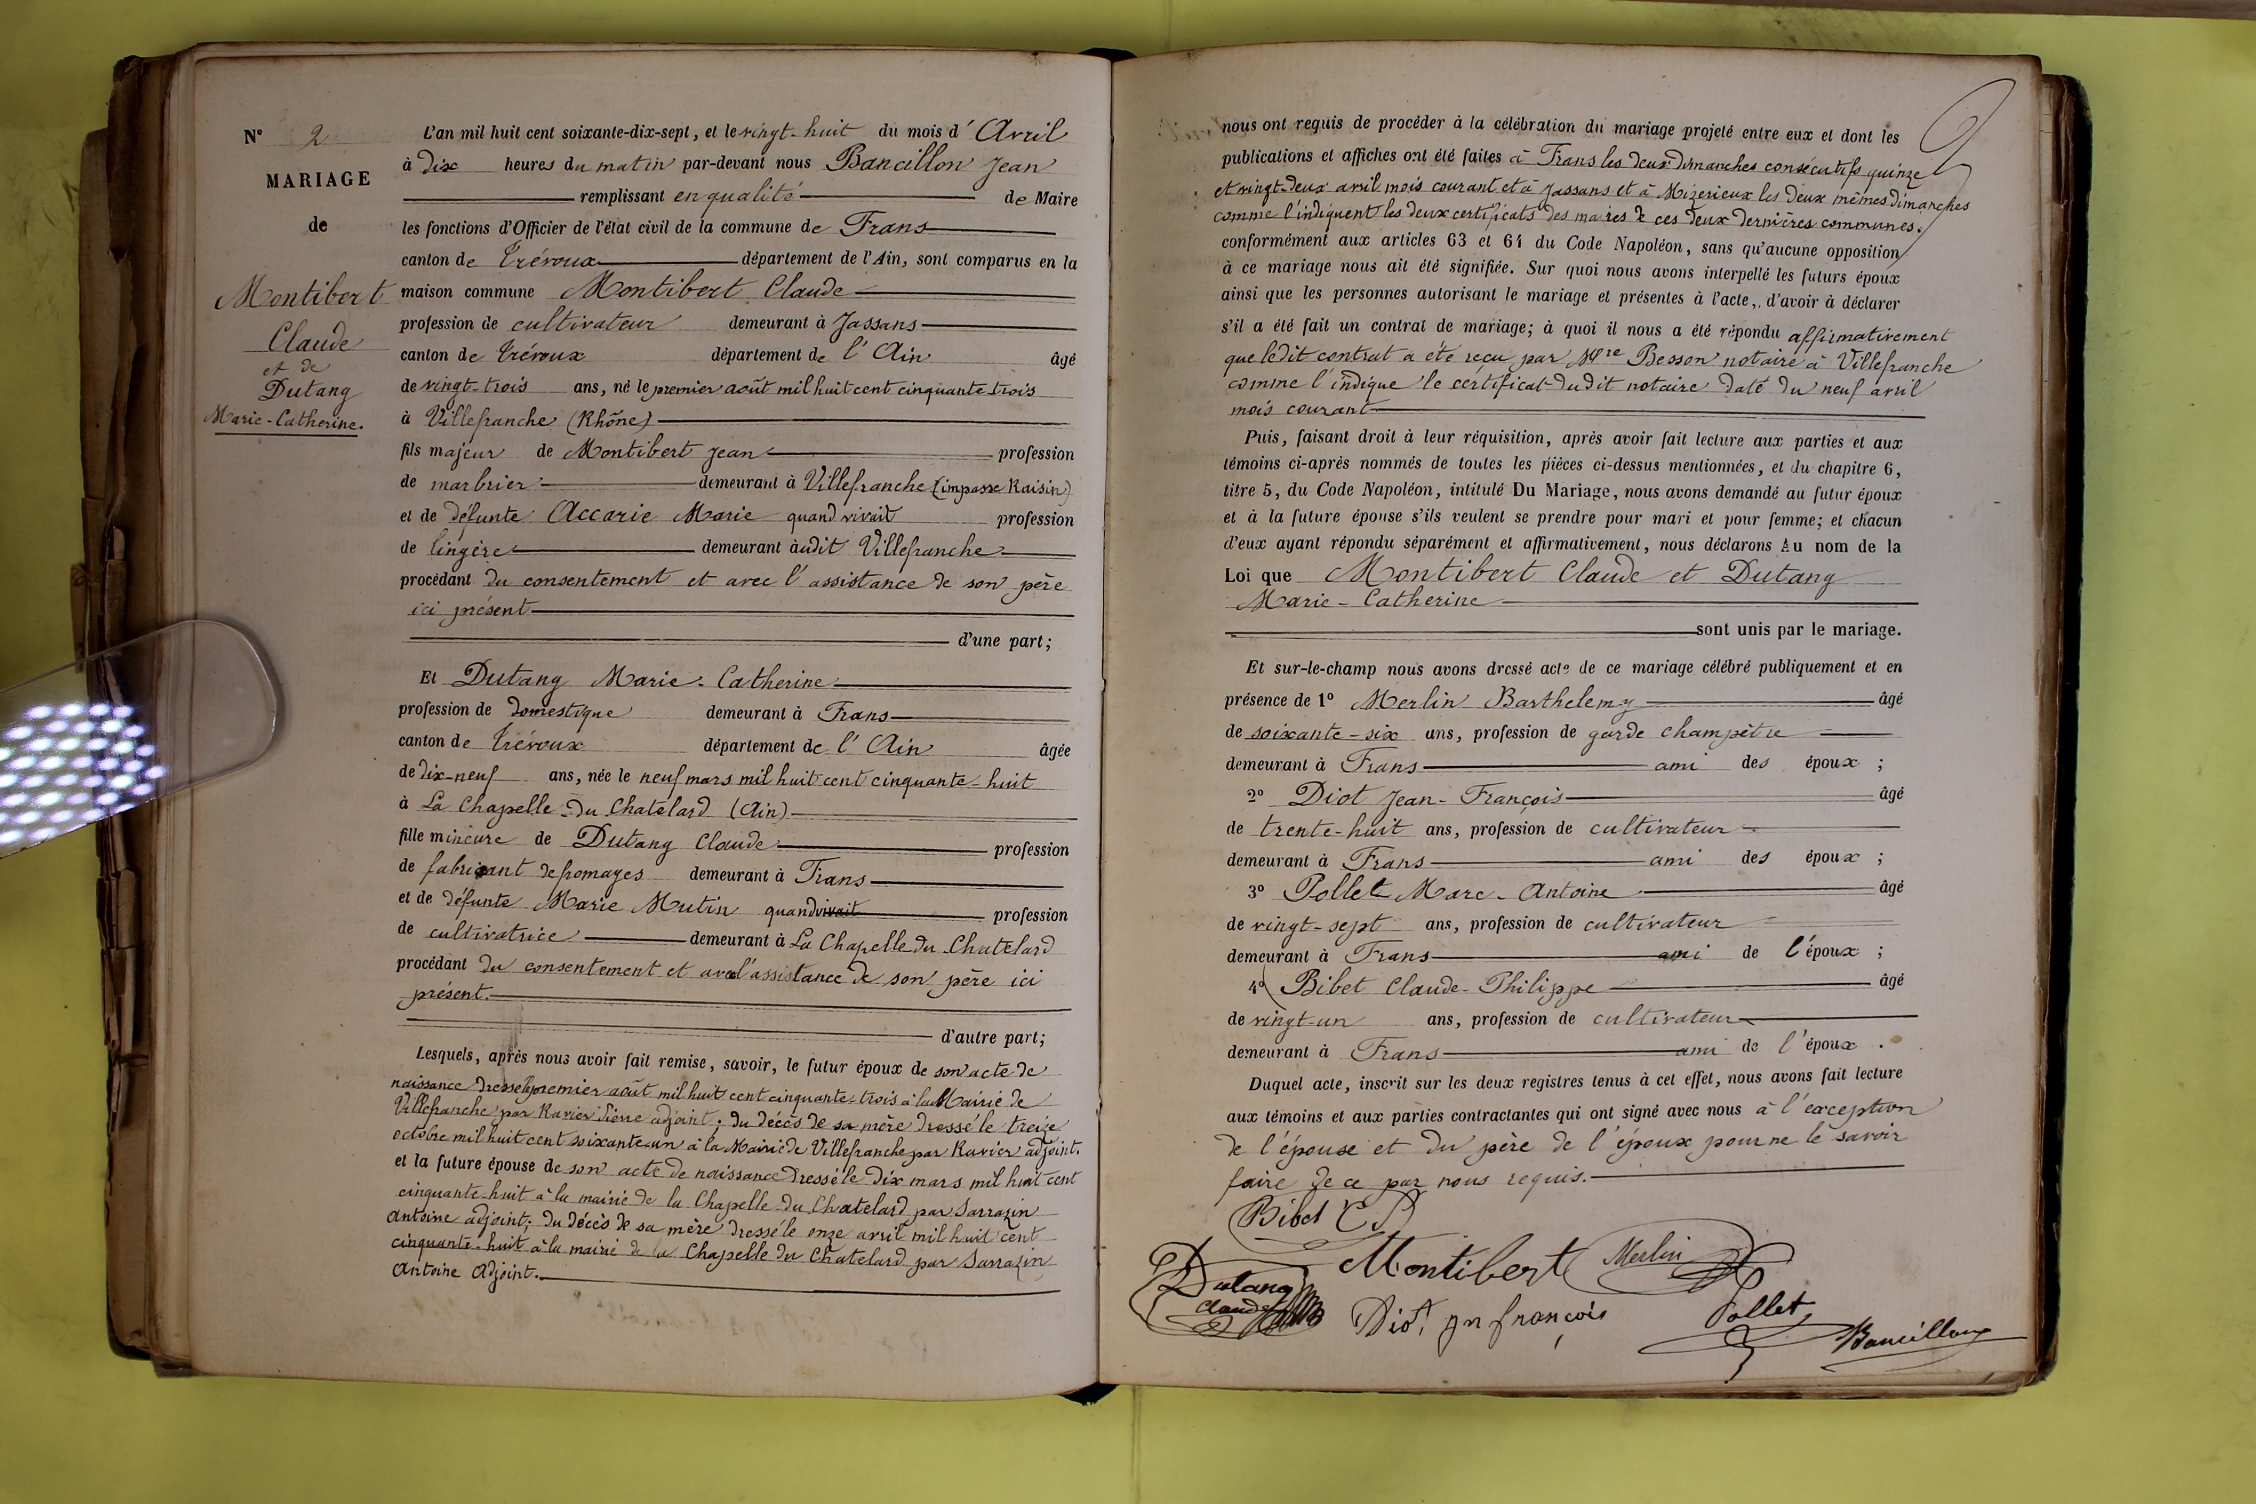 N° 2
MARIAGE
de
Montibert
Claude
et de
Dutang
Marie-Catherine.
L'an mil huit cent soixante-dix-sept, et le vingt-huit du mois d'Avril
à dix heures du matin par-devant nous Bancillon Jean
remplissant en qualité de Maire
les fonctions d'Officier de l'état civil de la commune de Frans
canton de Trévoux département de l'Ain, sont comparus en la
maison commune Montibert Claude
profession de cultivateur demeurant à Jassans
canton de Trévoux département de l'Ain âgé
de vingt-trois ans, né le premier août mil huit cent cinquante-trois
à Villefranche (Rhône)
fils majeur de Montibert Jean profession
de marbrier demeurant à Villefranche (impasse Raisin)
et de défunte Accarie Marie quand vivait profession
de lingère demeurant àudit Villefranche
procédant du consentement et avec l'assistance de son père
ici présent
d'une part;
Et Dutang Marie-Catherine
profession de domestique demeurant à Frans
canton de Trévoux département de l'Ain âgée
de dix-neuf ans, née le neuf mars mil huit cent cinquante-huit
à La Chapelle-du-Chatelard (Ain)
fille mineure de Dutang Claude profession
de fabricant de fromages demeurant à Frans
et de défunte Marie Mutin quand vivait profession
de cultivatrice demeurant à La Chapelle du Chatelard
procédant du consentement et avec l'assistance de son père ici
présent.
d'autre part;
Lesquels, après nous avoir fait remise, savoir, le futur époux de son acte de
naissance dressé le premier août mil huit cent cinquante-trois à la Mairie de
Villefranche par Ravier Pierre adjoint; du décès de sa mère dressé le treize
octobre mil huit cent soixante-un à la Mairie de Villefranche par Ravier adjoint.
et la future épouse de son acte de naissance dressé le dix mars mil huit cent
cinquante-huit à la mairie de la Chapelle-du-Chatelard par Sarrazin
Antoine adjoint; du décès de sa mère dressé le onze avril mil huit cent
cinquante-huit à la mairie de la Chapelle du Chatelard par Sarrazin
Antoine Adjoint.
nous ont requis de procéder à la célébration du mariage projeté entre eux et dont les
publications et affiches ont été faites à Frans les deux dimanches consécutifs quinze
et vingt-deux avril mois courant et à Jassans et à Mizerieux les deux mêmes dimanches
comme l'indiquent les deux certificats des maires de ces deux dernières communes.
conformément aux articles 63 et 64 du Code Napoléon, sans qu'aucune opposition
à ce mariage nous ait été signifiée. Sur quoi nous avons interpellé les futurs époux
ainsi que les personnes autorisant le mariage et présentes à l'acte, d'avoir à déclarer
s'il a été fait un contrat de mariage; à quoi il nous a été répondu affirmativement
que ledit contrat a été reçu par Mre Besson notaire à Villefranche
comme l'indique le certificat dudit notaire daté du neuf avril
mois courant
Puis, faisant droit à leur réquisition, après avoir fait lecture aux parties et aux
témoins ci-après nommés de toutes les pièces ci-dessus mentionnées, et du chapitre 6,
titre 5, du Code Napoléon, intitulé Du Mariage, nous avons demandé au futur époux
et à la future épouse s'ils veulent se prendre pour mari et pour femme; et chacun
d'eux ayant répondu séparément et affirmativement, nous déclarons Au nom de la
Loi que Montibert Claude et Dutang
Marie-Catherine
sont unis par le mariage.
Et sur-le-champ nous avons dressé acte de ce mariage célébré publiquement et en
présence de 1° Merlin Barthelemy âgé
de soixante-six ans, profession de garde champêtre
demeurant à Frans ami des époux;
2° Diot Jean-François âgé
de trente-huit ans, profession de cultivateur
demeurant à Frans ami des époux;
3° Pollet Marc-Antoine âgé
de vingt-sept ans, profession de cultivateur
demeurant à Frans ami de l'époux;
4° Bibet Claude-Philippe âgé
de vingt-un ans, profession de cultivateur
demeurant à Frans ami de l'époux.
Duquel acte, inscrit sur les deux registres tenus à cet effet, nous avons fait lecture
aux témoins et aux parties contractantes qui ont signé avec nous à l'exception
de l'épouse et du père de l'époux pour ne le savoir
faire de ce par nous requis.
Bibet C P
Montibert Merlin
Dutang
Claude
Diot jn françois
Pollet
Bancillon